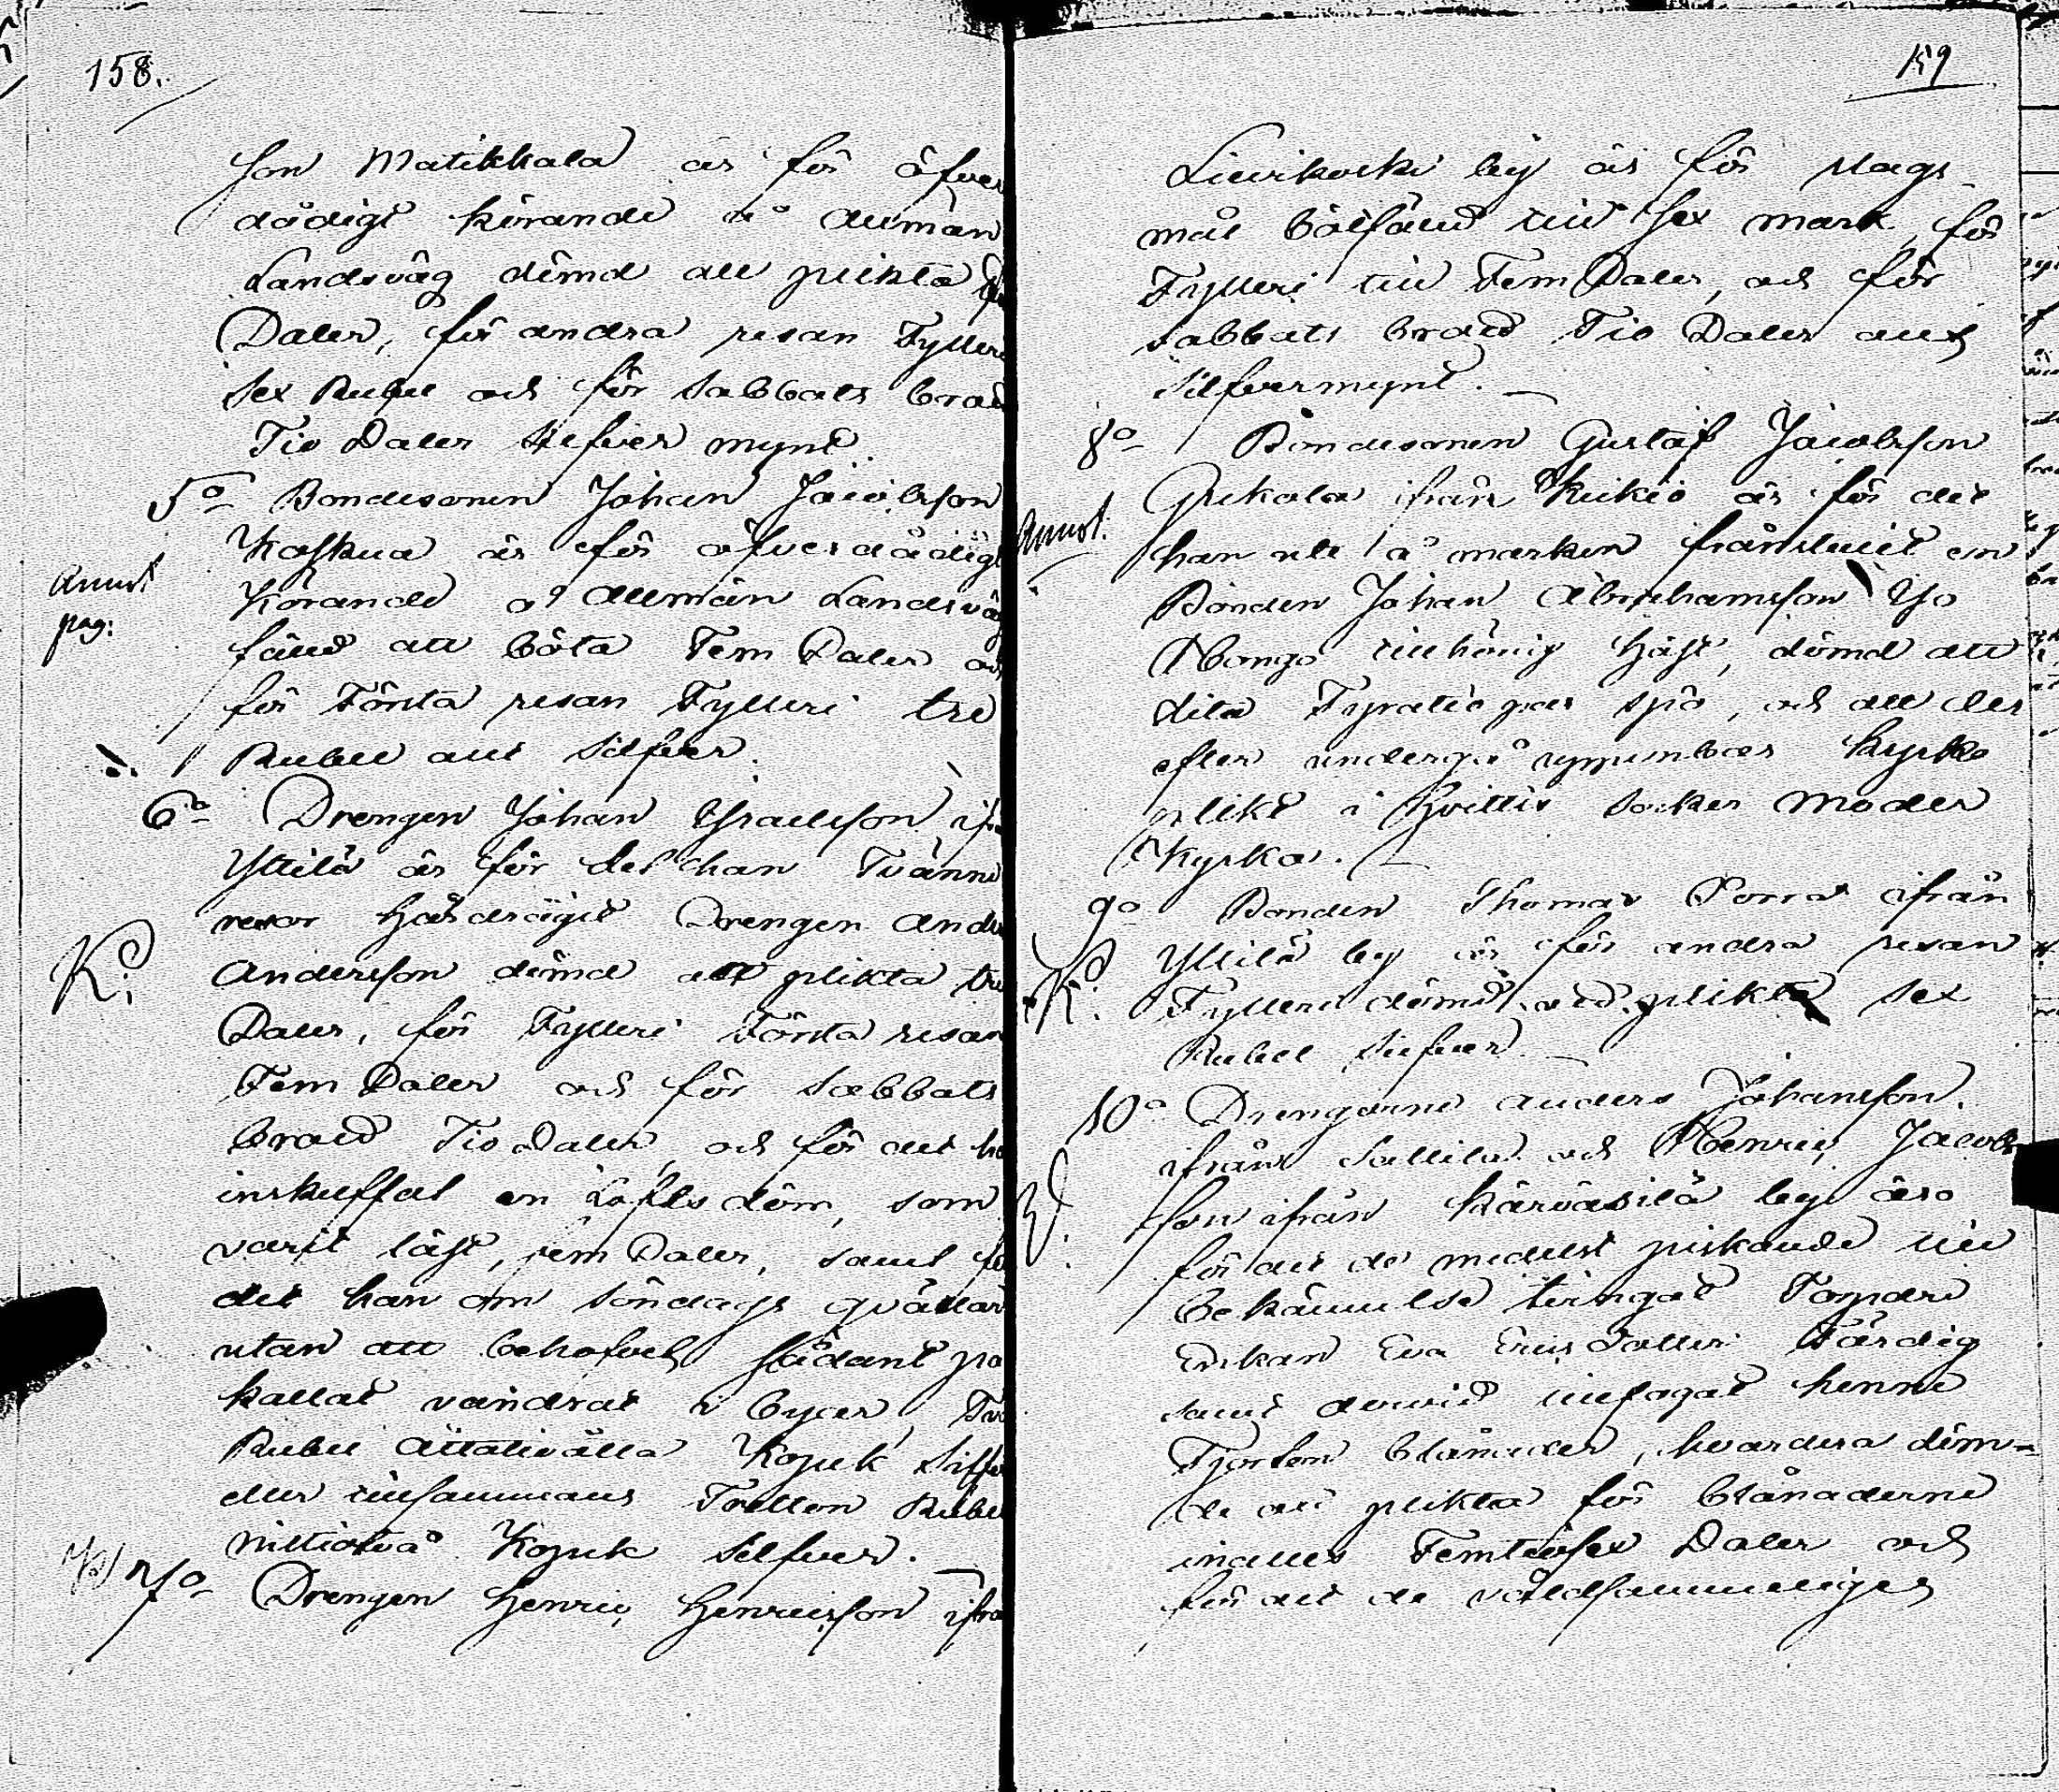 158.
son Matikkala är för öfver
dådigt körande å allmän
Landsväg dömd att plikta
Daler, för andra resan Fylleri
Sex Rubel och för Sabbats brott
Tio Daler Silfver mynt.
5o Bondesonen Johan Jacobsson
Koskua är för öfverdådigt
Annot
pag:
Körande å allmän Landsväg
fälld att böta Fem Daler och
för Första resan Fylleri tre
Rubel allt Silfver.
6o Drengen Johan Israelsson ifrån
Yttilä är för det han Tvänne
resor hårdragit Drengen Anders
K:
Andersson dömd att plikta tre
Daler, för Fylleri Första resan
Fem Daler och för Sabbats
brott Tio Daler och för det han
inskuffat en Lofts dörr, som
varit låst, fem Daler, samt för
det han om Söndags qvällar
utan att behofvet sådant på
kallat vandrat i Byar, Två
Rubel Åttatioåtta Kopek Silfver
eller tillsammans Tretton Rubel
nittiotvå Kopek Silfver.
7o Drengen Henric Henricsson ifrån
159
Lievikoski by är för slags
mål bötfälld till Sex mark, för
Fylleri till Fem Daler, och för
Sabbats brott Tio Daler allt
Silfvermynt.
8o Bondesonen Gustaf Jacobsson
Grekola ifrån Keikiö är för det
Annot:
han ute å marken frånstulit en
Bonden Johan Abrahamsson Yso
Mongo tillhörig häst, dömd att
slita Fyratio par spö, och att der
efter undergå uppenbar kyrko
plikt i Hvittis Socken Moder
Kyrka.
9o Bonden Thomas Porra ifrån
Yttilä by är för andra resan
K:
Fylleri dömd att plikta Sex
Rubel Silfver.
10o Drengarne Anders Johansson
ifrån Sallila och Henric Jacobs
son ifrån Kärväsilä by äro
för det de medelst piskande till
bekännelse tvingat
Enkan Eva Ericsdotter Färdig
samt dervid tillfogat henne
Fjorton blånader, hvardera döm-
de att plikta för blånaderne
inalles Femtiosex Daler och
för det de våldsammeligen